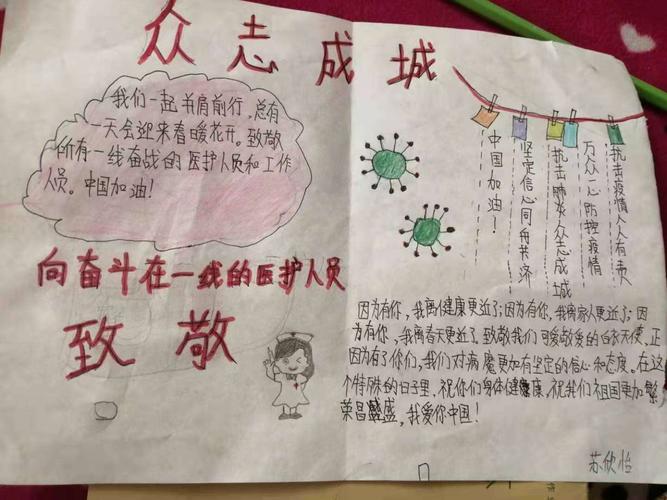 众志成城
我们一起书肩前行，总有
一天会迎来春暖花开。致敬
所有一线奋战的医护人员和工作
人员。中国加油！
向奋斗在一线的医护人员
致敬
中国加油！
坚定信心同舟共济
抗击肺炎众志成城
万众一心防控疫情
抗击疫情人人有责
因为有你，我离健康更近了；因为有你，我离家人更近了；因
为有你，我离春天更近了。致敬我们可爱敬爱的白衣天使，正
因为有了你们，我们对病魔更加有坚定的信心和态度。在这
个特殊的日子里，祝你们身体健康，祝我们祖国更加繁
荣昌盛，我爱你中国！
苏欣怡